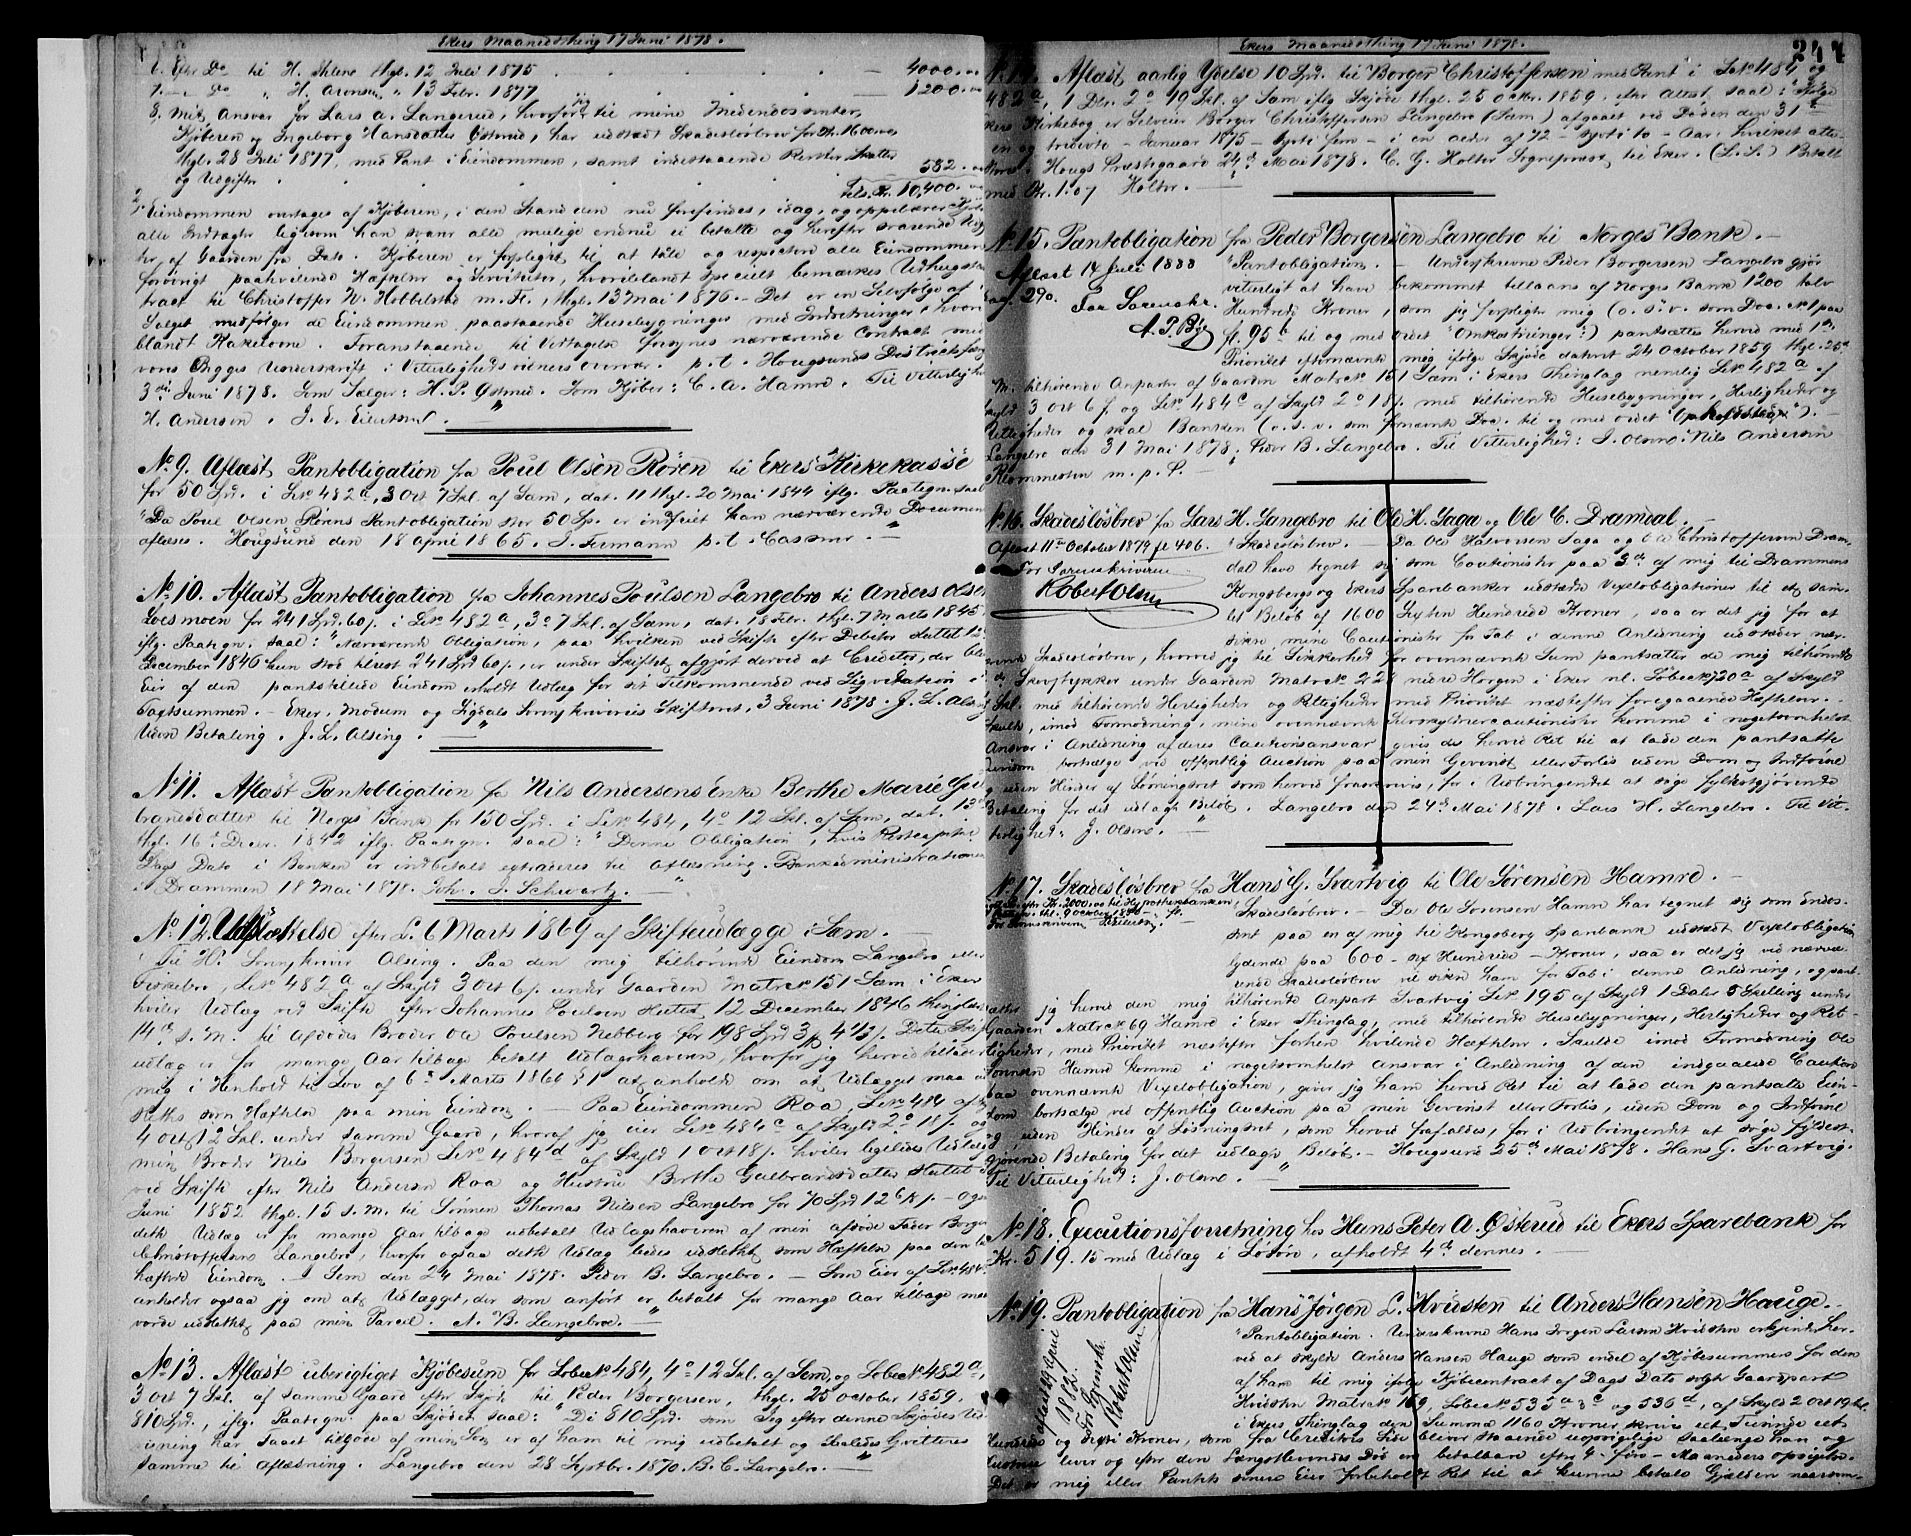 Ekers Maanedsthing 17 Juni 1878.
6. Efter Do til H. Ahlene thgl. 12 Juli 1875 4000.
7. — Do " H. Aronsen " 13 Febr. 1877 1200.
8. Mit Ansvar for Lars A. Langerud, hvorfor til mine Medcautionister,
Kjøberen og Ingeborg Hansdatter Østerud, har udstedt Skadesløsbrev for Kr. 1600
thgl. 28 Juli 1877, med Pant i Eiendommen, samt indestaaende Renter Skatter
og Udgifter 582.
Tils. Kr. 10,400.
2, Eiendommen overtages af Kjøberen, i den Stand den nu forefindes, idag, og oppebærer
alle Indtægter ligesom han svarer alle mulige endnu ei betalte og herefter svarende
af Gaarden fra Dato. Kjøberen er forpligtet til at taale og respectere alle Eiendommen
forøvrigt paahvilende Hæftelser og Servituter, hvoriblandt specielt bemærkes Udhugst
tract til Christoffer N. Hobbelstad m. Fl., thgl. 13 Mai 1876. — Det er en Selvfølge af
Salget medfølger de Eiendommen paastaaende Husebygninger med Indretninger, hvori
blandt Kakelovne. Foranstaaende til Vedtagelse forsynes nærværende Contract med
vores Begges Underskrift i Vitterlighedsvidners Overvær. p.t. Hougsunds Distriktsfæng
3die Juni 1878. Som Sælger: H. P. Østerud. Som Kjøber: C. A. Hamre. Til Vitterlighed
H. Andersen. J. E. Eilertsen.
No 9. Aflæst Pantobligation fra Poul Olsen Røren til Ekers Kirkekasse
for 50 Spd. i Lø№ 482a, 3 Ort 7 Skl. af Sem, dat. 11 thgl. 20 Mai 1844 iflg. Paategn. saal
"Da Poul Olsen Rørens Pantobligation stor 50 Sp. er indfriet kan nærværende Document
aflæses. Hougsund den 18 April 1865. J. Fermann p.t. Casserer.
No 10. Aflæst Pantobligation fra Johannes Poulsen Langebro til Anders Olsen
Loesmoen for 241 Spd. 60 s. i Lø№ 482a, 3 o 7 Skl. af Sem, dat. 18 Febr. thgl. 7 Marts 1845
iflg. Paategn. saal: "Nærværende Obligation, paa hvilken ved Skifte efter Debitor sluttet 12
December 1846 kun stod tilrest 241 Spd 60 s., er under Skiftet afgjort derved at Creditor, der blev
Eier af den pantstillede Eiendom erholdt Udlæg for sit Tilkommende ved Liqvidation i
Taxtsummen. — Eker, Modum og Sigdals Sorenskriveries Skifteret, 3 Juni 1878. J. L. Alsing
Uden Betaling. J. L. Alsing.
No 11. Aflæst Pantobligation fra Nils Andersens Enke Berthe Marie Gul
brandsdatter til Norges Bank for 150 Spd. i Lø№ 484, 4 o 12 Skl. af Sem, dat. 13
thgl. 16 Decbr. 1842 iflg. Paategn. saal: "Denne Obligation, hvis Restcapital
Dags Dato i Banken er indbetalt extraderes til Aflæsning. Bankadministrationen
i Drammen 18 Mai 1878. Joh. J. Schwartz.
No 12. Udslættelse efter L. 6 Marts 1869 af Skifteudlægge i Sem.
Til Hr. Sorenskriver Alsing. Paa den mig tilhørende Eiendom Langebro eller
Fiskebro, Lø№ 482a af Skyld 3 Ort 6 s. under Gaarden Matr№ 151 Sem i Eker
hviler Udlæg ved Skifte efter Johannes Poulsen sluttet 12 December 1846 thinglæst
14de s. M. til Afdødes Broder Ole Poulsen Nebberg for 198 Spd 3 4½ s. Dette Skifte
udlæg er for mange Aar tilbage betalt Udlægshaveren, hvorfor jeg herved tillader
mig i Henhold til Lov af 6te Marts 1869 § 1 at anholde om at Udlægget maa ud
slettes som Hæftelse paa min Eiendom. — Paa Eiendommen Roa, Lø№ 484 af Skyld
4 Ort 12 Skl. under samme Gaard, hvoraf jeg eier Lø№ 484c af Skyld 2 o 18 s. og
min Broder Nils Borgersen Lø№ 484d af Skyld 1 Ort 18 s. hviler ligeledes Udlæg
ved Skifte efter Nils Andersen Roa og Hustrue Berthe Gulbrandsdatter sluttet
Juni 1852 thgl. 15 s. M. til Sønnen Thomas Nilsen Langebro for 70 Spd 12 s. — Ogsaa
dette Udlæg er for mange Aar tilbage udbetalt Udlagshaveren af min afdøde Fader Borger
Christoffersen Langebro, hvorfor ogsaa dette Udlæg bedes udslettet som Hæftelse paa den be
hæftede Eiendom. — Sem den 24 Mai 1878. Peder B. Langebro. — Som Eier af Lø№ 484d
anholder ogsaa jeg om at Udlægget, der som anført er betalt for mange Aar tilbage maa
vorde udslettet paa min Parcel. N. B. Langebro.
No 13. Aflæst uberigtiget Kjøbesum for Løbe№ 484, 4 o 12 Skl. af Sem, og Løbe№ 482a,
3 Ort 7 Skl. af samme Gaard efter Skjøde til Peder Borgersen, thgl. 25 October 1859,
810 Spd., iflg. Paategn. paa Skjødet saal: "De 810 Spd. som Jeg efter denne Skjødes Ud
visning har Faaet tilgode af min Søn er af ham til mig udbetalt og saaledes Qvitteres
samme til Aflæsning. Langebro den 28 Septbr. 1870. B. C. Langebro.
Ekers Maanedsthing 17 Juni 1878.
244
No 14. Aflæst aarlig Ydelse 10 Spd. til Borger Christoffersen med Pant i Lø№ 484 og
482a, 1 Dlr. 2 o 19 Skl. af Sem iflg. Skjøde thgl. 25 Octbr. 1859, efter Attest saal: "Ifølge
Ekers Kirkebog er Selveier Borger Christoffersen Langebro (Sem) afgaaet ved Døden den 31te
en og tredivte — Januar 1875 — sytti fem — i en Alder af 72 — sytti to — Aar, hvilket atte-
steres. Hougs Præstegaard 24de Mai 1878. C. G. Holter Sogneprest til Eker. (L.S.) Betalt
med Kr. 1.07 Holter.
No 15. Pantobligation fra Peder Borgersen Langebro til Norges Bank.
Aflæst 17 Juli 1888
Pag. 290.
Paa Sorenskr.
A. P. Bøe
"Pantobligation. — Underskrevne Peder Borgersen Langebro gjør
vitterligt at have bekommet tillaans af Norges Bank 1200 tolv
Hundrede Kroner, som jeg forpligter mig (o.s.v. som Doc. № 1 paa
fl. 95b til og med ordet "Omkostninger") pantsættes herved med 1ste
Prioritet efternævnte mig ifølge Skjøde dateret 24 October 1859 thgl. 25de
s. M. tilhørende Anparter af Gaarden Matr№ 151 Sem i Ekers Thinglag nemlig Lø№ 482a af
Skyld 3 Ort 6 s. og Lø№ 484c af Skyld 2 o 18 s. med tilhørende Husebygninger, Herligheder og
Rettigheder og skal Banken (o.s.v. som fornævnte Doc. til og med ordet "Opholdssted").
Langebro den 31 Mai 1878. Peder B. Langebro. Til Vitterlighed: J. Olsen. Nils Andersen
Klommesten m. p. P.
No 16. Skadesløsbrev fra Lars H. Langebro til Ole H. Saga og Ole C. Dramdal.
Aflæst 11te October 1879 fl. 406.
For Sorenskriveren
Robert Olsen
"Skadesløsbrev. — Da Ole Halvorsen Saga og Ole Christoffersen Dram-
dal have tegnet sig som Cautionister paa 3de af mig til Drammens
Kongsbergs og Ekers Sparebanker udstedte Vexelobligationer til et sam-
let Beløb af 1600 Sexten Hundrede Kroner, saa er det jeg for at
sikre mine Cautionister for Tab i denne Anledning udsteder nær-
værende Skadesløsbrev, hvorved jeg til Sikkerhed for ovennævnte Sum pantsætter de mig tilhørende
Skovstykker under Gaarden Matr№ 224 nedre Horgen i Eker nl. Løbe№ 720a af Skyld
Skl. med tilhørende Herligheder og Rettigheder med Prioritet næstefter foregaaende Hæftelser.
Skulde, imod Formodning, mine ovennævnte Selvskyldnercautionister komme i nogetsomhelst
Ansvar i Anledning af deres Cautionsansvar gives de herved Ret til at lade den pantsatte
Eiendom bortsælge ved offentlig Auction paa min Gevinst eller Forlis uden Dom og Indførsel
og uden Hinder af Løsningsret som herved frasskrives, for i Udbringendet at søge fyldestgjørende
Betaling for det udlagte Beløb. Langebro den 24de Mai 1878. Lars H. Langebro. Til Vit-
terlighed: J. Olsen.
No 17. Skadesløsbrev fra Hans G. Svartvig til Ole Sørensen Hamre.
efter Kr. 2000.00 til Hypothekbanken
thl. 9 October 1890 fl.
For Sorenskriveren
"Skadesløsbrev. — Da Ole Sørensen Hamre har tegnet sig som Endos-
sent paa en af mig til Kongsberg Sparebank udstedt Vexelobligation
lydende paa 600 — sex Hundrede — Kroner, saa er det jeg ved nærvæ-
rende Skadesløsbrev vil sikre ham for Tab i denne Anledning, og pant-
sætter jeg herved den mig tilhørende Anpart Svartvig Lø№ 195 af Skyld 1 Daler 5 Skilling under
Gaarden Matr№ 69 Hamre i Eker Thinglag, med tilhørende Husebygninger, Herligheder og Ret-
tigheder, med Prioritet næstefter forhen hvilende Hæftelser. Skulde imod Formodning Ole
Sørensen Hamre komme i nogetsomhelst Ansvar i Anledning af den indgaaede Caution
paa ovennævnte Vexelobligation, giver jeg ham herved Ret til at lade den pantsatte Eien-
dom bortsælge ved offentlig Auction paa min Gevinst eller Forlis, uden Dom og Indførsel
og uden Hinder af Løsningsret, som herved frafaldes, for i Udbringendet at søge fyldest-
gjørende Betaling for det udlagte Beløb. — Hougsund 25de Mai 1878. Hans G. Svartvig.
Til Vitterlighed: J. Olsen.
No 18. Executionsforretning hos Hans Peter A. Østerud til Ekers Sparebank for
Kr. 519.15 med Udlæg i Løsøre, afholdt 4de dennes.
No 19. Pantobligation fra Hans Jørgen L. Hvidsten til Anders Hansen Hauge.
Aflæst 19 April
1882.
For Sorenskr.
Robert Olsen
"Pantobligation. Underskrevne Hans Jørgen Larsen Hvidsten erkjender her-
ved at skylde Anders Hansen Hauge som endel af Kjøbesummen for den
af ham til mig ifølge Kjøbecontract af Dags Dato solgte Gaardpart
Hvidsten Matr№ 169, Løbe№ 535a og 536d, af Skyld 2 Ort 19 Skl.
i Ekers Thinglag den Summa 1160 Kroner, skriver eet Tusinde eet
Hundrede og sexti Kroner, som fra Creditors Side bliver staaende uopsigelige saalænge han og
Hustrue lever og efter den Længstlevendes Død er betalbare efter 4 — fire — Maaneders Opsigelse.
Det er mig eller Pantets senere Eier forbeholdt Ret til at kunne betale Gjælden naarsom-